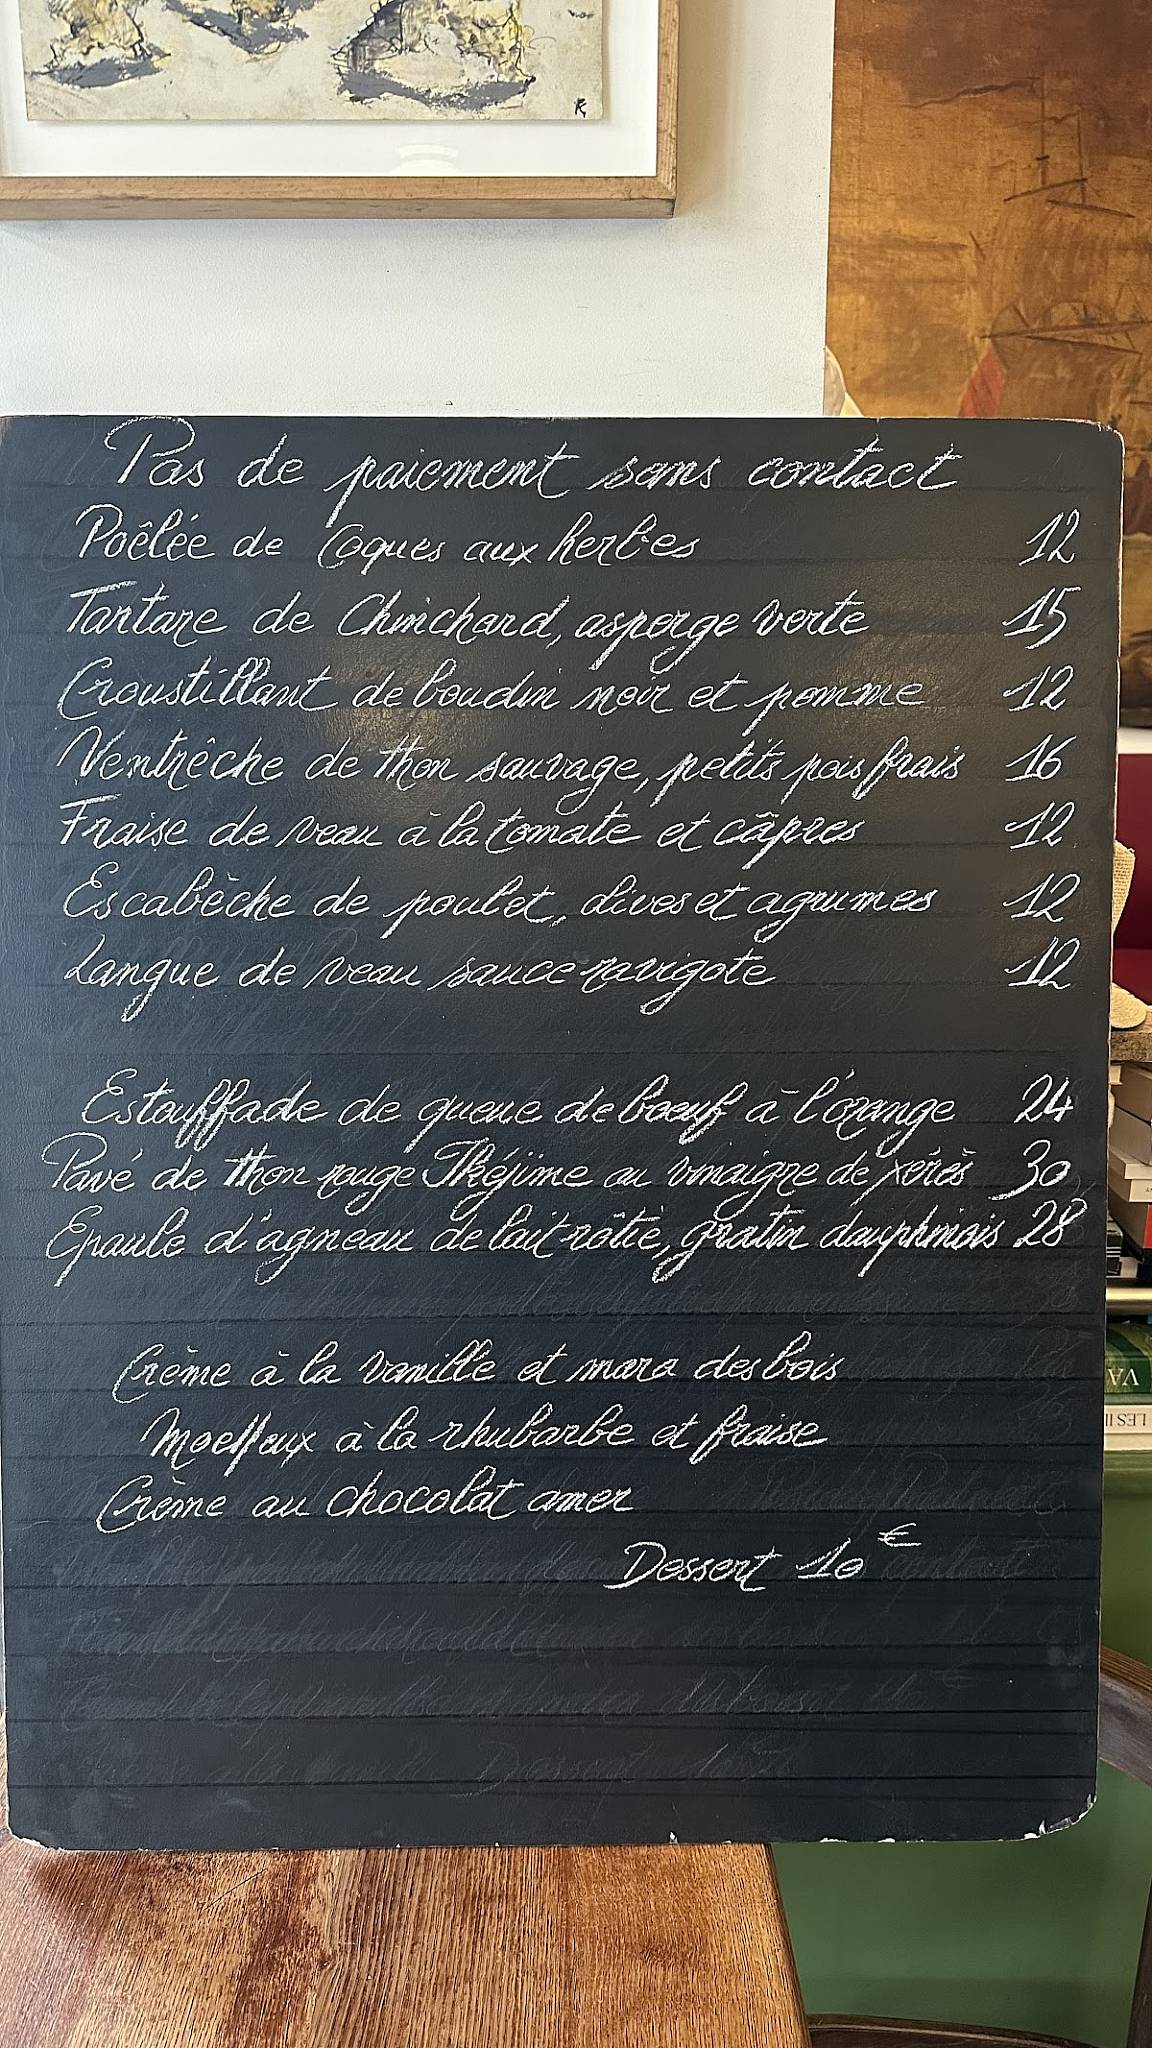 Pas de paiement sans contact
Poêlée de Coques aux herbes 12
Tartare de Chinchard, asperge verte 15
Croustillant de boudin noir et pomme 12
Ventrêche de thon sauvage, petits pois frais 16
Fraise de veau à la tomate et câpres 12
Escabèche de poulet, olives et agrumes 12
Langue de veau sauce ravigote 12
Estouffade de queue de bœuf à l'orange 24
Pavé de thon rouge Ikéjime au vinaigre de xérès 30
Epaule d'agneau de lait rôtie, gratin dauphinois 28
Crème à la vanille et mara des bois
Moelleux à la rhubarbe et fraise
Crème au chocolat amer
Dessert 10€
VA
LES II